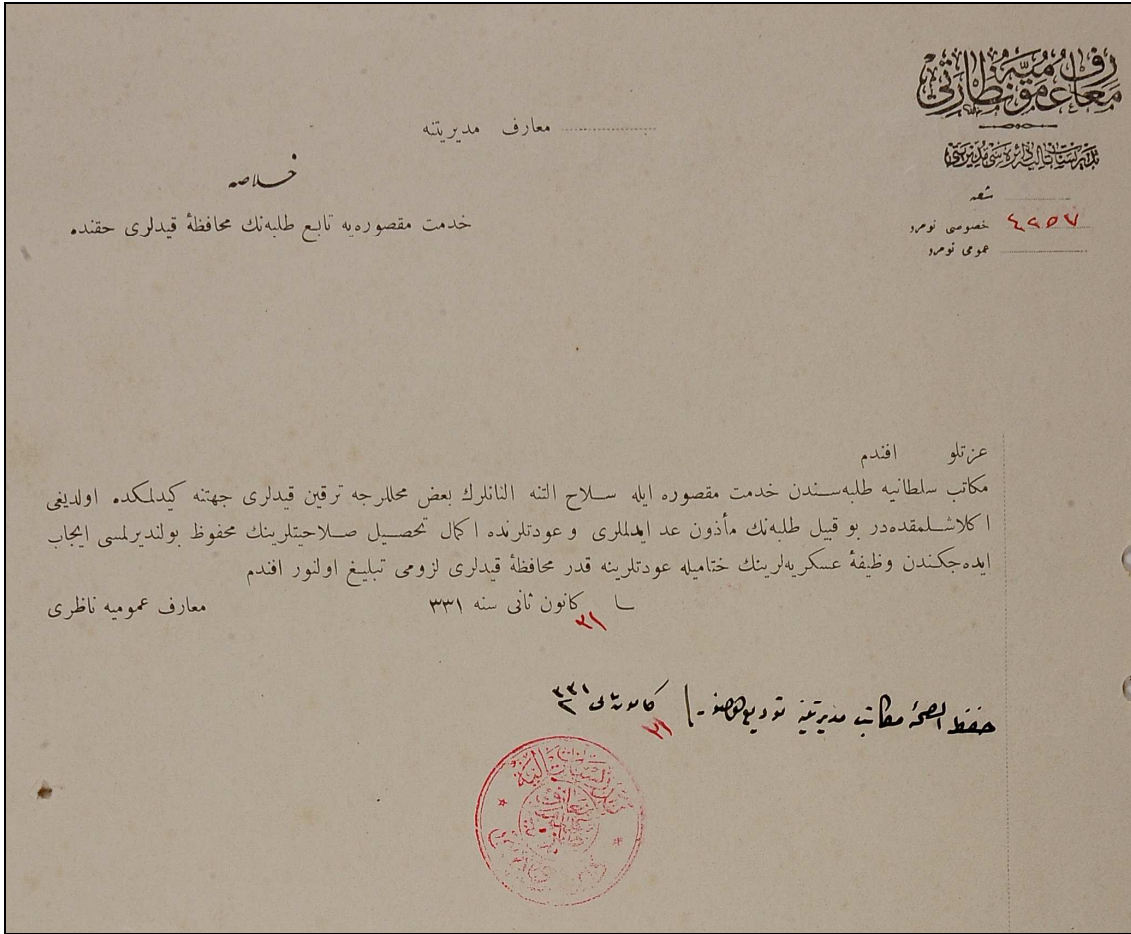 معارف عموميه نظارتى
تدريسات تاليه دائره‌سى مديريتى
شعبه
خصوصى نومرو ٤٢٥٧
عمومى نومرو
معارف مديريتنه
خلاصه
خدمت مقصوره‌يه تابع طلبه‌نك محافظهٔ قيدلرى حقنده
عزتلو افندم
مكاتب سلطانيه طلبه‌سندن خدمت مقصوره ايله سلاح التنه النانلرك بعض محللرجه ترقين قيدلرى جهتنه كيدلمكده اولديغى
اكلاشلمقده‌در بو قبيل طلبه‌نك مأذون عد ايدلملرى و عودتلرنده اكمال تحصيل صلاحيتلرينك محفوظ بولنديرلمسى ايجاب
ايده‌جكندن وظيفهٔ عسكريه‌لرينك ختاميله عودتلرينه قدر محافظهٔ قيدلرى لزومى تبليغ اولنور افندم
٣١ كانون ثانى سنه ٣٣١
معارف عموميه ناظرى
حفظ الصحهٔ مكاتب مديريتنه ٣١ كانون ثانى ٣٣١